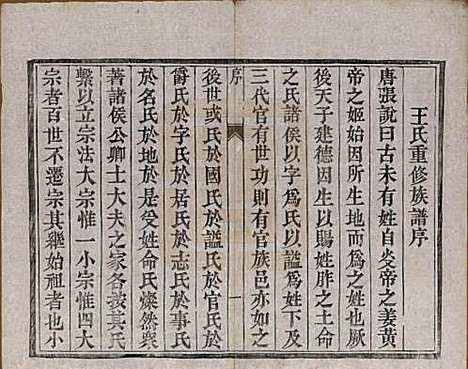 王氏重修族譜序
唐張說曰古未有姓自炎帝之姜黃
帝之姬始因所生地而為之姓也厥
後天子建德因生以賜姓胙之土命
之氏諸侯以字為氏以謚為氏下及
三代官有世功則有官族邑亦如之
序
一
後世或氏於國氏於謚氏於官氏於
爵氏於字氏於居氏於志氏於事氏
於名氏於地於是受姓命氏燦然與
著諸侯公卿士大夫之家各按其氏
繫以立宗法大宗惟一小宗惟四大
宗者百世不遷宗其繼始祖者也小